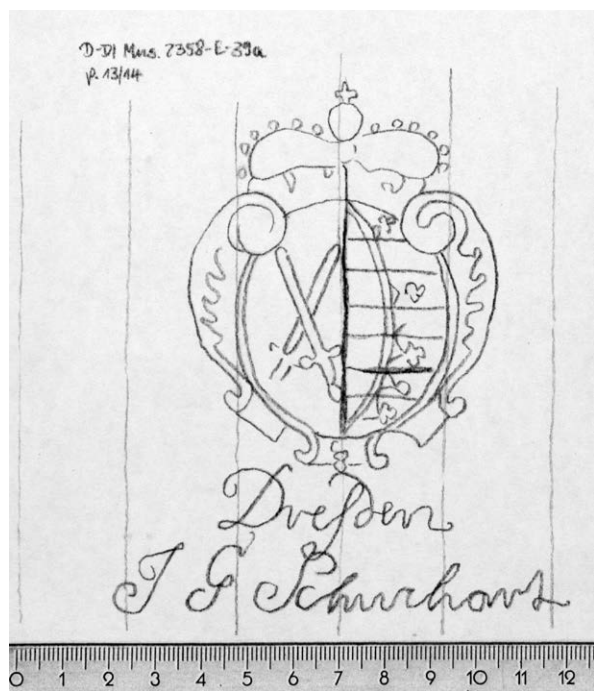 D-Dl Mus. 2358-E-39a
p. 13/14
Dreſden
J G Schuchart
0 1 2 3 4 5 6 7 8 9 10 11 12